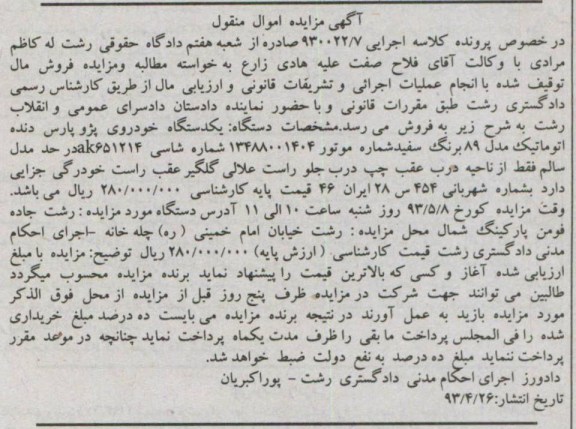 آگهی مزایده اموال منقول
در خصوص پرونده کلاسه اجرایی ۹۳۰۰۲۲/۷ صادره از شعبه هفتم دادگاه حقوقی رشت له کاظم
مرادی با وکالت آقای فلاح صفت علیه هادی زارع به خواسته مطالبه ومزایده فروش مال
توقیف شده با انجام عملیات اجرائی و تشریفات قانونی و ارزیابی مال از طریق کارشناس رسمی
دادگستری رشت طبق مقررات قانونی و با حضور نماینده دادستان دادسرای عمومی و انقلاب
رشت به شرح زیر به فروش می رسد.مشخصات دستگاه: یکدستگاه خودروی پژو پارس دنده
اتوماتیک مدل ۸۹ برنگ سفیدشماره موتور ۱۳۴۸۸۰۰۱۴۰۴ شماره شاسی ak۶۵۱۲۱۴در حد مدل
سالم فقط از ناحیه درب عقب چپ درب جلو راست علالی گلگیر عقب راست خوردگی جزایی
دارد بشماره شهربانی ۴۵۴ س ۲۸ ایران ۴۶ قیمت پایه کارشناسی ۲۸۰/۰۰۰/۰۰۰ ریال می باشد.
وقت مزایده کورخ ۹۳/۵/۸ روز شنبه ساعت ۱۰ الی ۱۱ آدرس دستگاه مورد مزایده : رشت جاده
فومن پارکینگ شمال محل مزایده : رشت خیابان امام خمینی (ره) چله خانه –اجرای احکام
مدنی دادگستری رشت قیمت کارشناسی (ارزش پایه) ۲۸۰/۰۰۰/۰۰۰ ریال توضیح: مزایده با مبلغ
ارزیابی شده آغاز و کسی که بالاترین قیمت را پیشنهاد نماید برنده مزایده محسوب میگردد
طالبین می توانند جهت شرکت در مزایده ظرف پنج روز قبل از مزایده از محل فوق الذکر
مورد مزایده بازید به عمل آورند در نتیجه برنده مزایده می بایست ده درصد مبلغ خریداری
شده را فی المجلس پرداخت ما بقی را ظرف مدت یکماه پرداخت نماید چنانچه در موعد مقرر
پرداخت ننماید مبلغ ده درصد به نفع دولت ضبط خواهد شد.
دادورز اجرای احکام مدنی دادگستری رشت – پوراکبریان
تاریخ انتشار:۹۳/۴/۲۶